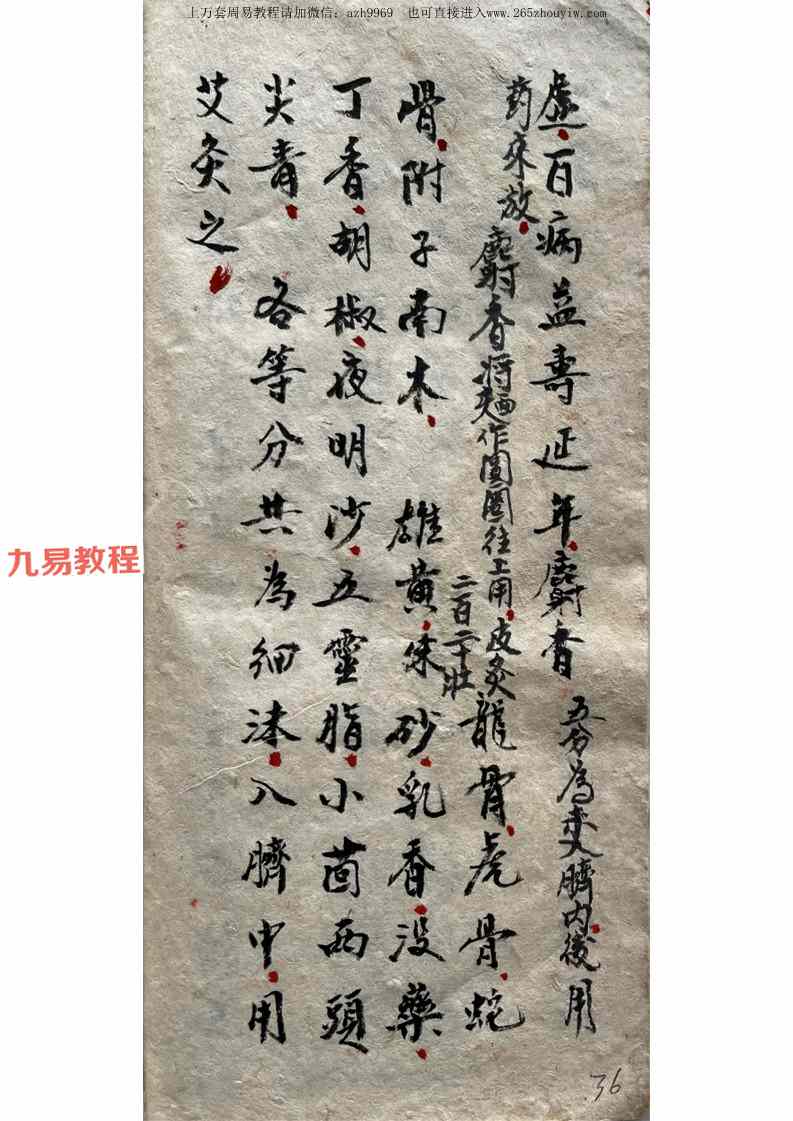 上万套周易教程请加微信：azh9969 也可直接进入www.265zhouyiw.com
虚百病益壽延年麝香五分為末入臍内後用
药末放麝香将麺作圓圈往上用皮灸二百二十壯
龍骨虎骨蛇
骨附子南木雄黃朱砂乳香没藥
丁香胡椒夜明沙五靈脂小茴两頭
尖青各等分共為細沫入臍中用
艾灸之
九易教程
36